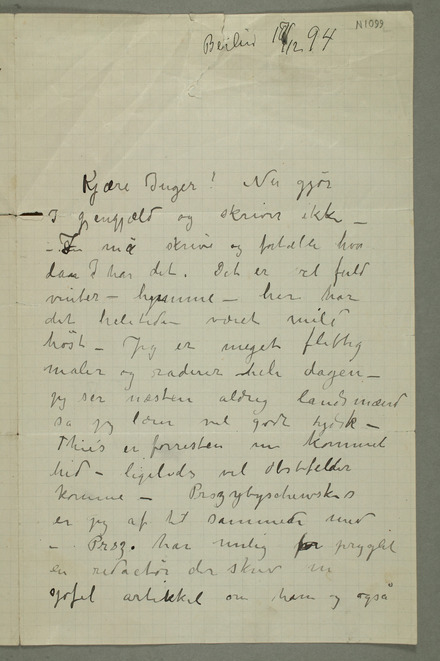 N1099
Berlin 17/12 94
Kjære Inger! Nu gjør
I gjengjæld og skriver ikke –
– I må skrive og fortælle hvo
dan I har det. Det er vel fuld
vinter – hjemme – her har
det heletiden været mild
høst – Jeg er meget flittig
maler og raderer hele dagen –
jeg ser næsten aldrig landsmænd
så jeg lærer vel godt tydsk –
Thiis er forresten nu kommet
hid – ligeledes vil Obstfelder
komme – Przybyschewskis
er jeg af til sammen med
– Prsz. har nylig pryglet
en redactør der skrev en
gofel artikkel om ham og også